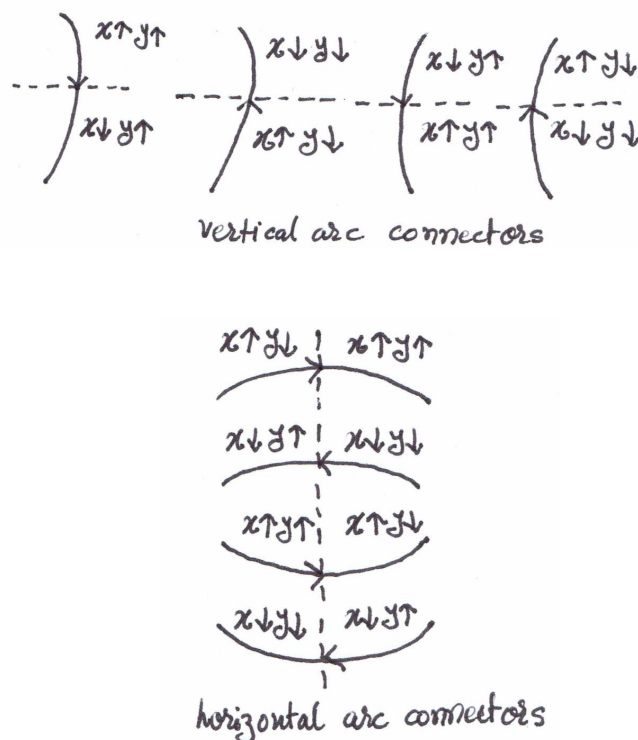 x↑y↑ x↓y↓ x↓y↑ x↑y↓
x↓y↑ x↑y↓ x↑y↑ x↓y↓
vertical arc connectors
x↑y↓ x↑y↑
x↓y↑ x↓y↓
x↑y↑ x↑y↓
x↓y↓ x↓y↑
horizontal arc connectors